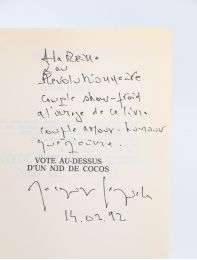 A la Reine
au
Révolutionnaire
couple show-froid
à l'image de ce livre
couple amour-humour
VOTE AU-DESSUS
D'UN NID DE COCOS
14.02.92